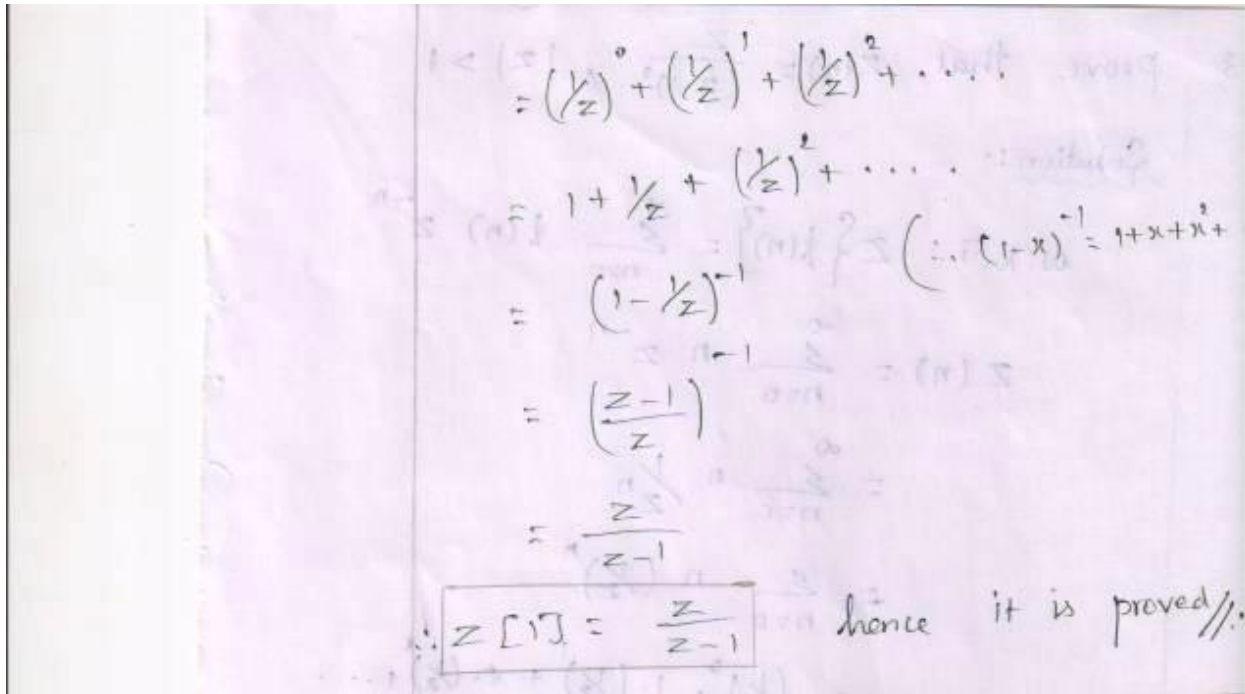 = (1/z)⁰ + (1/z)¹ + (1/z)² + ....
= 1 + 1/z + (1/z)² + .....
(∴ (1-x)⁻¹ = 1+x+x²+
= (1 - 1/z)⁻¹
= ((z-1)/z)⁻¹
= z/(z-1)
∴ Z[1] = z/(z-1) hence it is proved//.